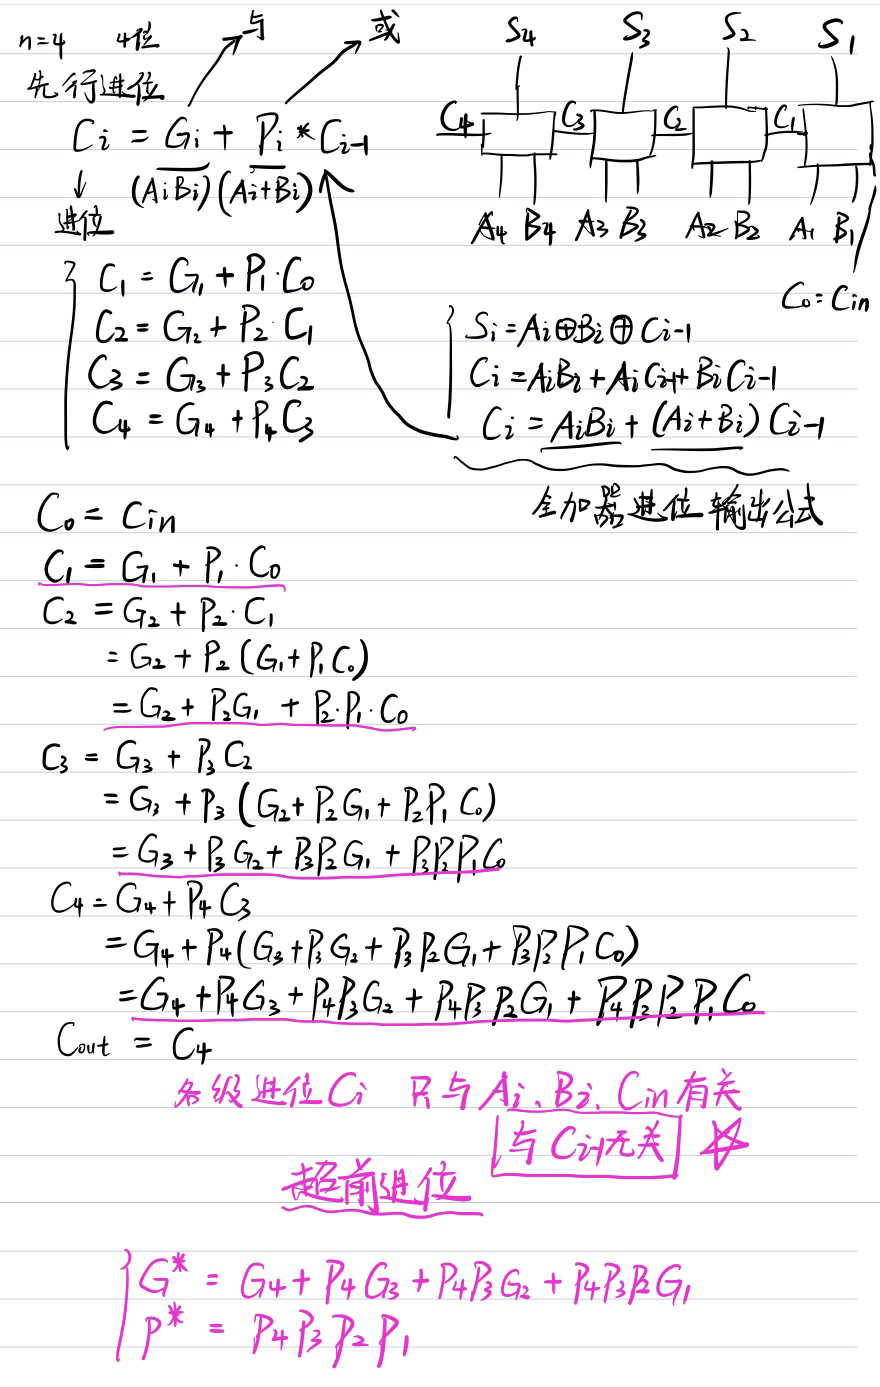 n=4 4位 与 或
先行进位
Ci = Gi + Pi * Ci-1
(AiBi) (Ai+Bi)
进位
C1 = G1 + P1·C0
C2 = G2 + P2·C1
C3 = G3 + P3C2
C4 = G4 + P4C3
S4 S3 S2 S1
C4 C3 C2 C1
A4 B4 A3 B3 A2 B2 A1 B1
C0 = Cin
Si = Ai⊕Bi⊕Ci-1
Ci = AiBi + AiCi-1 + BiCi-1
Ci = AiBi + (Ai+Bi) Ci-1
全加器进位输出公式
C0 = Cin
C1 = G1 + P1·C0
C2 = G2 + P2·C1
= G2 + P2 (G1+P1C0)
= G2 + P2G1 + P2·P1·C0
C3 = G3 + P3C2
= G3 + P3 (G2+P2G1+P2P1C0)
= G3 + P3G2 + P3P2G1 + P3P2P1C0
C4 = G4 + P4C3
= G4 + P4(G3+P3G2+P3P2G1+P3P2P1C0)
= G4 + P4G3 + P4P3G2 + P4P3P2G1 + P4P3P2P1C0
Cout = C4
各级进位Ci 只与Ai、Bi、Cin有关
与Ci-1无关
超前进位
G* = G4 + P4G3 + P4P3G2 + P4P3P2G1
P* = P4P3P2P1